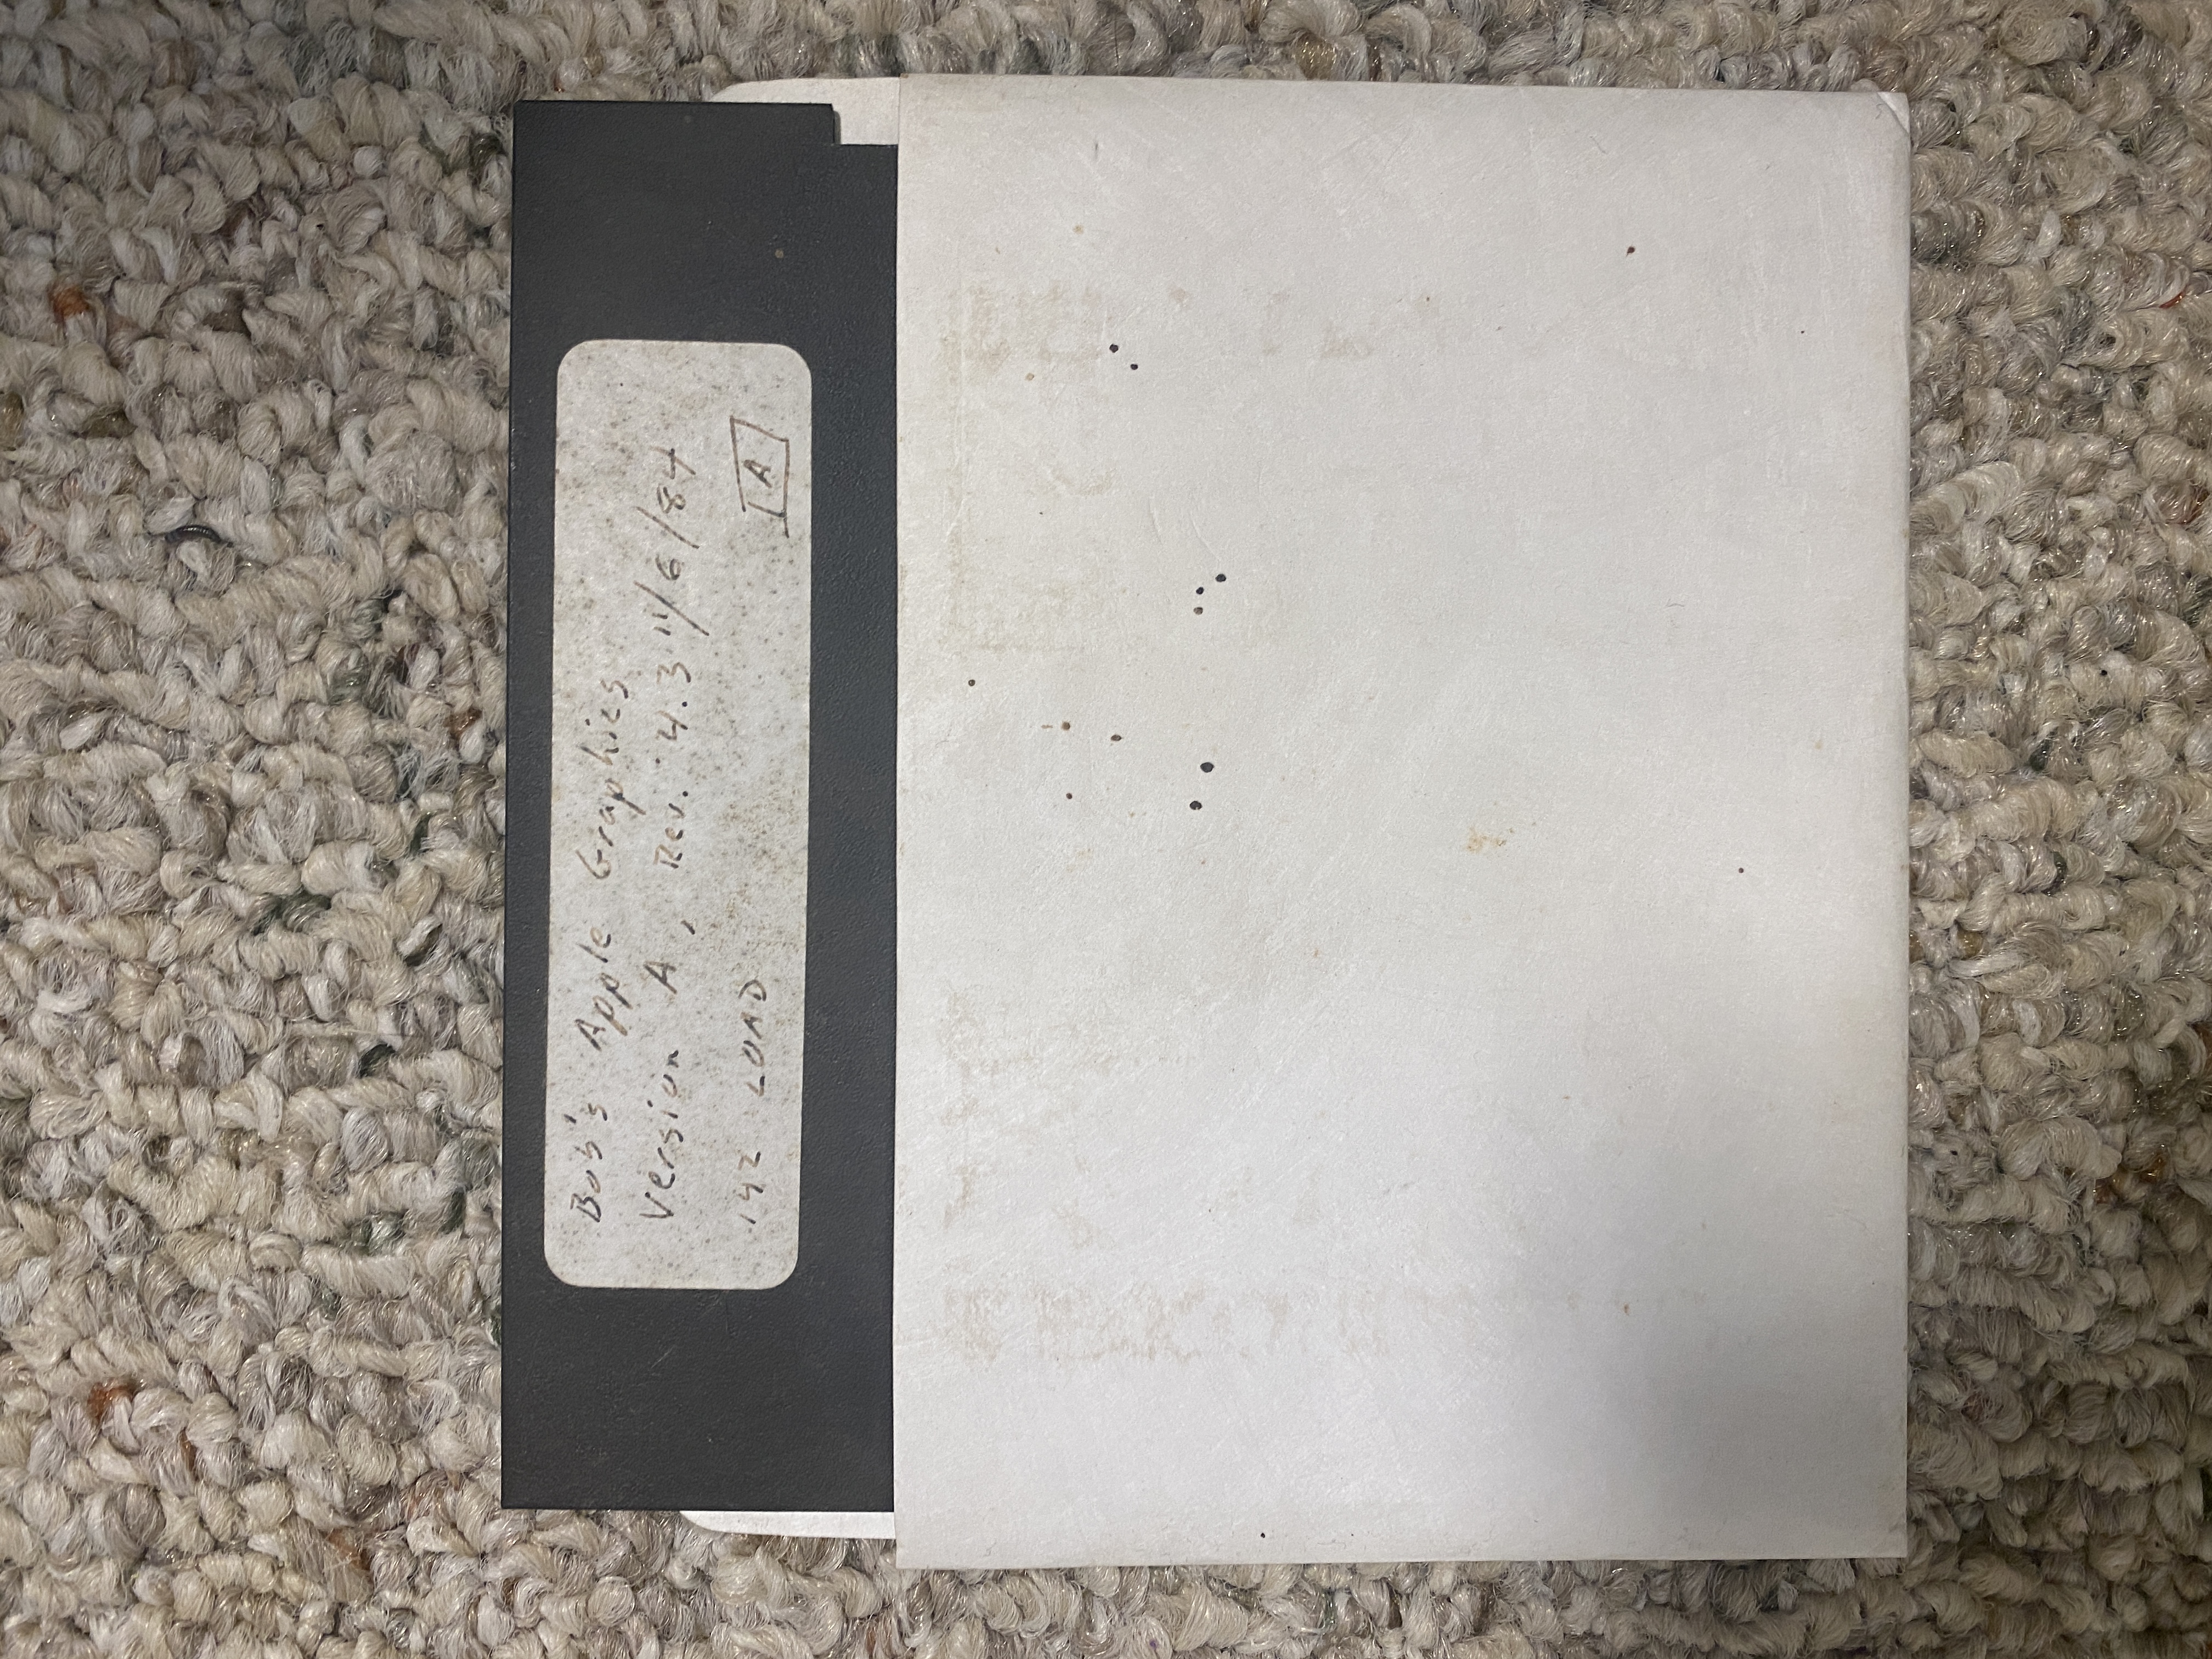 Bob's Apple Graphics
Version A, Rev. 4.3 11/6/84
142 LOAD
A